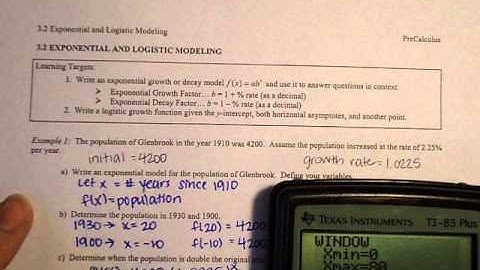 3.2 Exponential and Logistic Modeling
PreCalculus
3.2 EXPONENTIAL AND LOGISTIC MODELING
Learning Targets:
1. Write an exponential growth or decay model f(x) = abˣ and use it to answer questions in context.
➤ Exponential Growth Factor... b = 1 + % rate (as a decimal)
➤ Exponential Decay Factor... b = 1 – % rate (as a decimal)
2. Write a logistic growth function given the y-intercept, both horizontal asymptotes, and another point.
Example 1: The population of Glenbrook in the year 1910 was 4200. Assume the population increased at the rate of 2.25%
per year.
initial = 4200
growth rate = 1.0225
a) Write an exponential model for the population of Glenbrook. Define your variables.
Let x = # years since 1910
f(x) = population
b) Determine the population in 1930 and 1900.
1930 → x = 20 f(20) = 4200
1900 → x = -10 f(-10) = 4200
c) Determine when the population is double the original
TEXAS INSTRUMENTS TI-83 Plus
WINDOW
Xmin=0